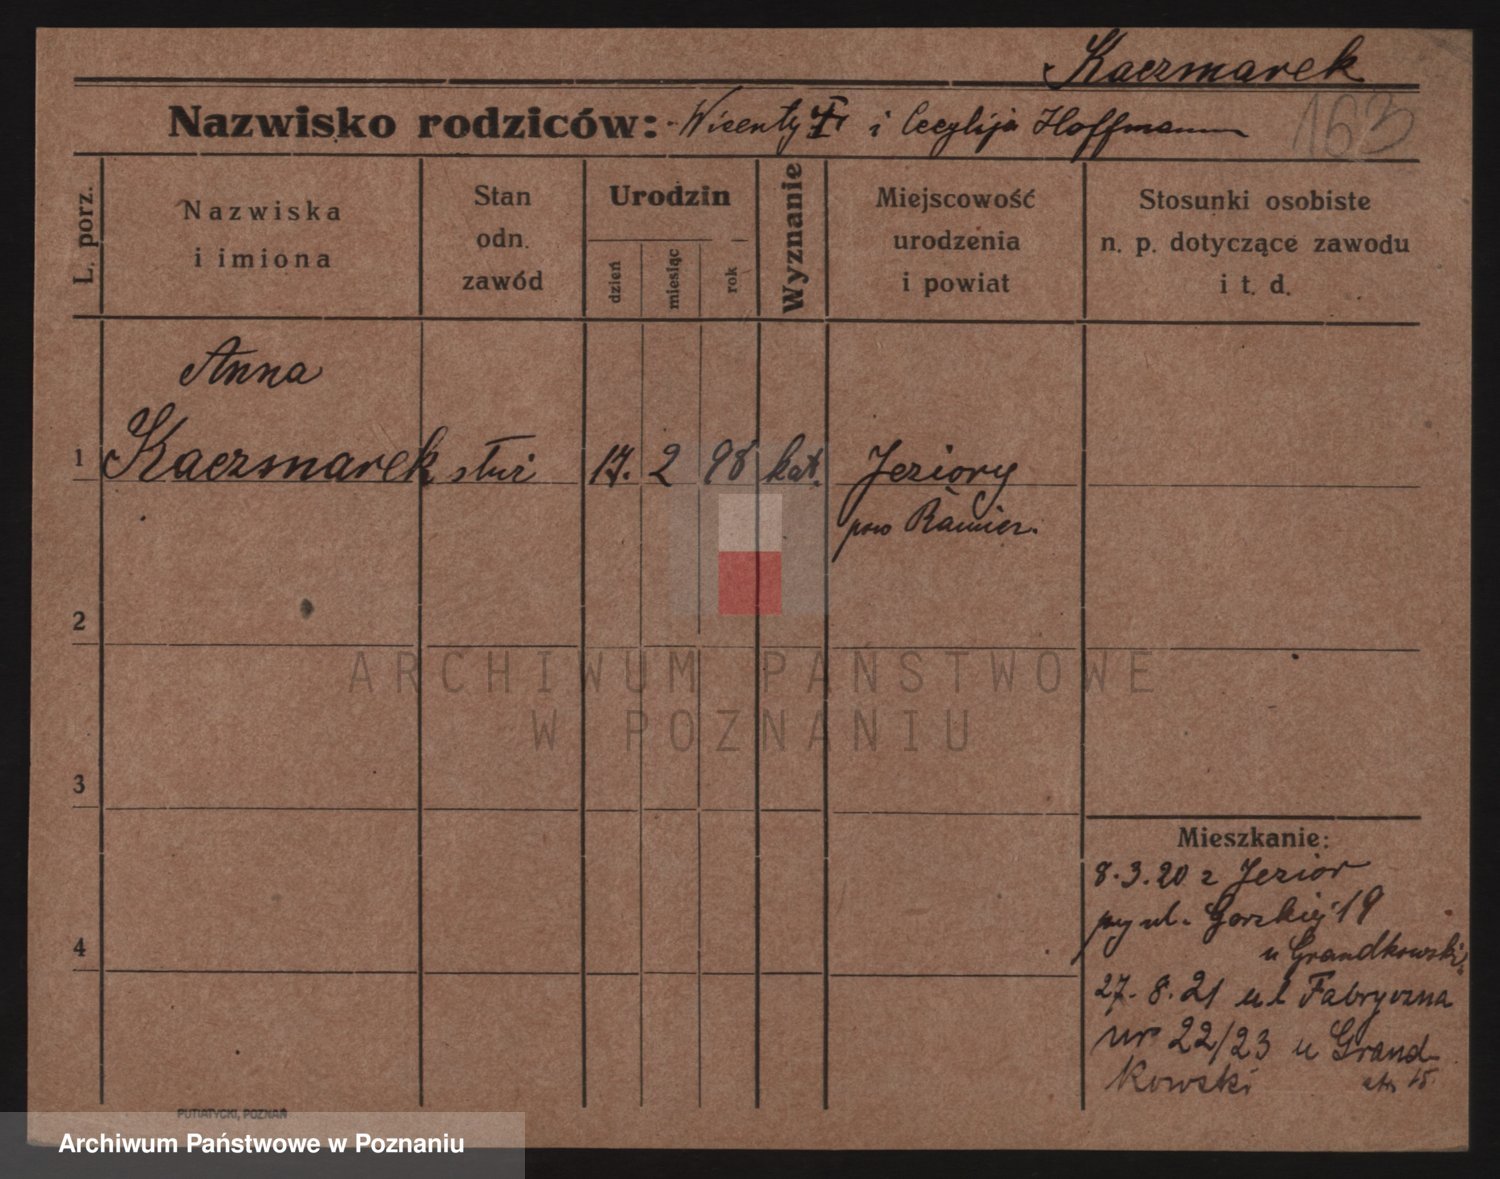 Kaczmarek
Nazwisko rodziców: Wicenty i Cecylija Hoffmann
163
L. porz.
Nazwiska
i imiona
Stan
odn.
zawód
Urodzin
dzień
miesiąc
rok
Wyznanie
Miejscowość
urodzenia
i powiat
Stosunki osobiste
n. p. dotyczące zawodu
i t. d.
Anna
1 Kaczmarek służ 17. 2 98 kat. Jeziory
pow
2
ARCHIWUM PAŃSTWOWE
W POZNANIU
3
Mieszkanie:
8.3.20 z Jezior
przy ul. Gorskiej 19
4
u Grandkowski
27.8.21 ul Fabryczna
nr 22/23 u Grand-
kowski
PUTIATYCKI, POZNAŃ
Archiwum Państwowe w Poznaniu